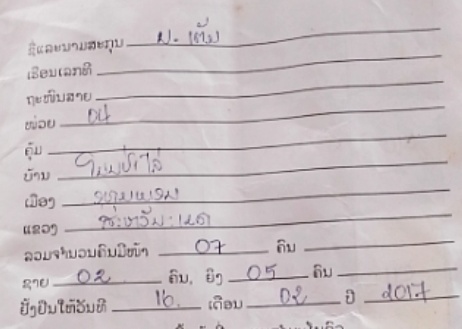 ຊື່ແລະນາມສະກຸນ ນ. ເຕັມ
ເຮືອນເລກທີ
ຖະໜົນສາຍ
ໜ່ວຍ 04
ຄຸ້ມ
ບ້ານ
ເມືອງ ອຸທຸມພອນ
ແຂວງ ສະຫວັນ:ເຂດ
ລວມຈຳນວນຄົນມີໜ້າ 07 ຄົນ
ຊາຍ 02 ຄົນ, ຍິງ 05 ຄົນ
ຢັ້ງຢືນໃຫ້ວັນທີ 16. ເດືອນ 02 ປີ 2017